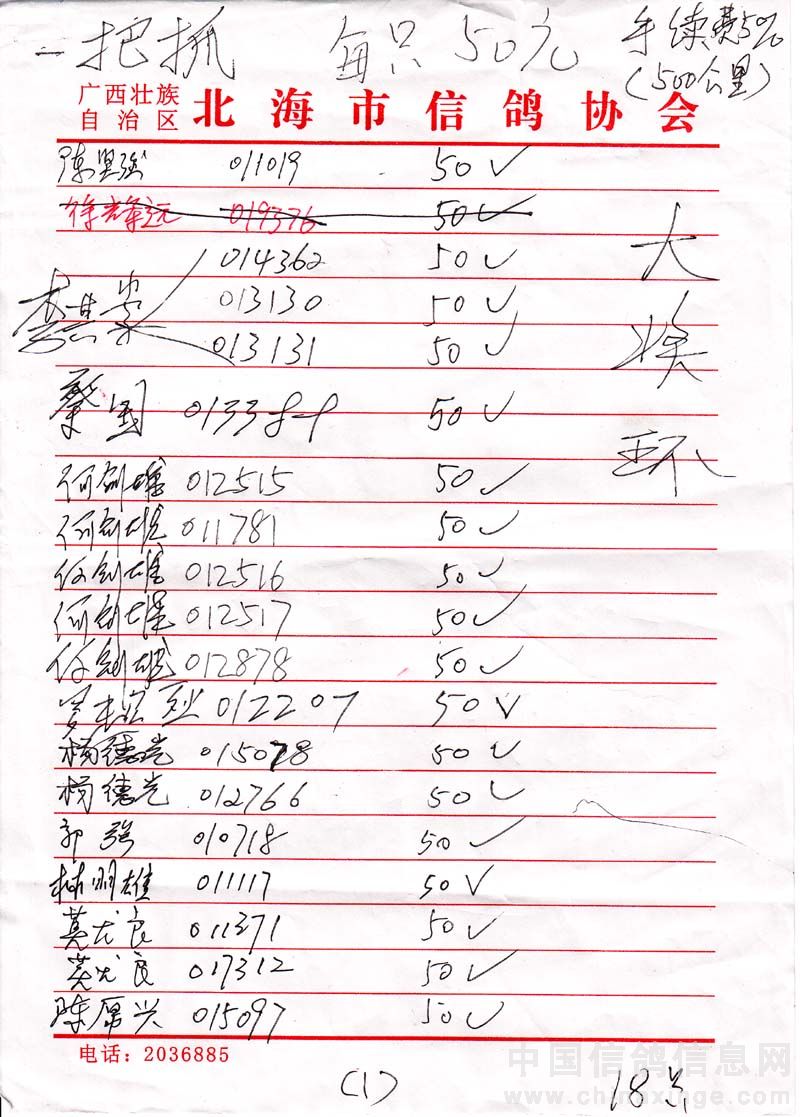 一把抓 每只50元 手续费5%
(500公里)
广西壮族
自治区 北海市信鸽协会
陈 强 011019 50 ✓
徐辉远 019376 50 ✓
014362 50 ✓
013130 50 ✓
013131 50 ✓
蔡国 0133 50 ✓
何剑雄 012515 50 ✓
何剑雄 011781 50 ✓
何剑雄 012516 50 ✓
何剑雄 012517 50 ✓
何剑雄 012878 50 ✓
012207 50 ✓
杨德光 015078 50 ✓
杨德光 012766 50 ✓
郭强 010718 50 ✓
林明雄 011117 50 ✓
莫尤良 011371 50 ✓
莫尤良 017312 50 ✓
陈 兴 015097 50 ✓
大
奖
环
电话：2036885
(1)
18
中国信鸽信息网
www.chinaxinge.com